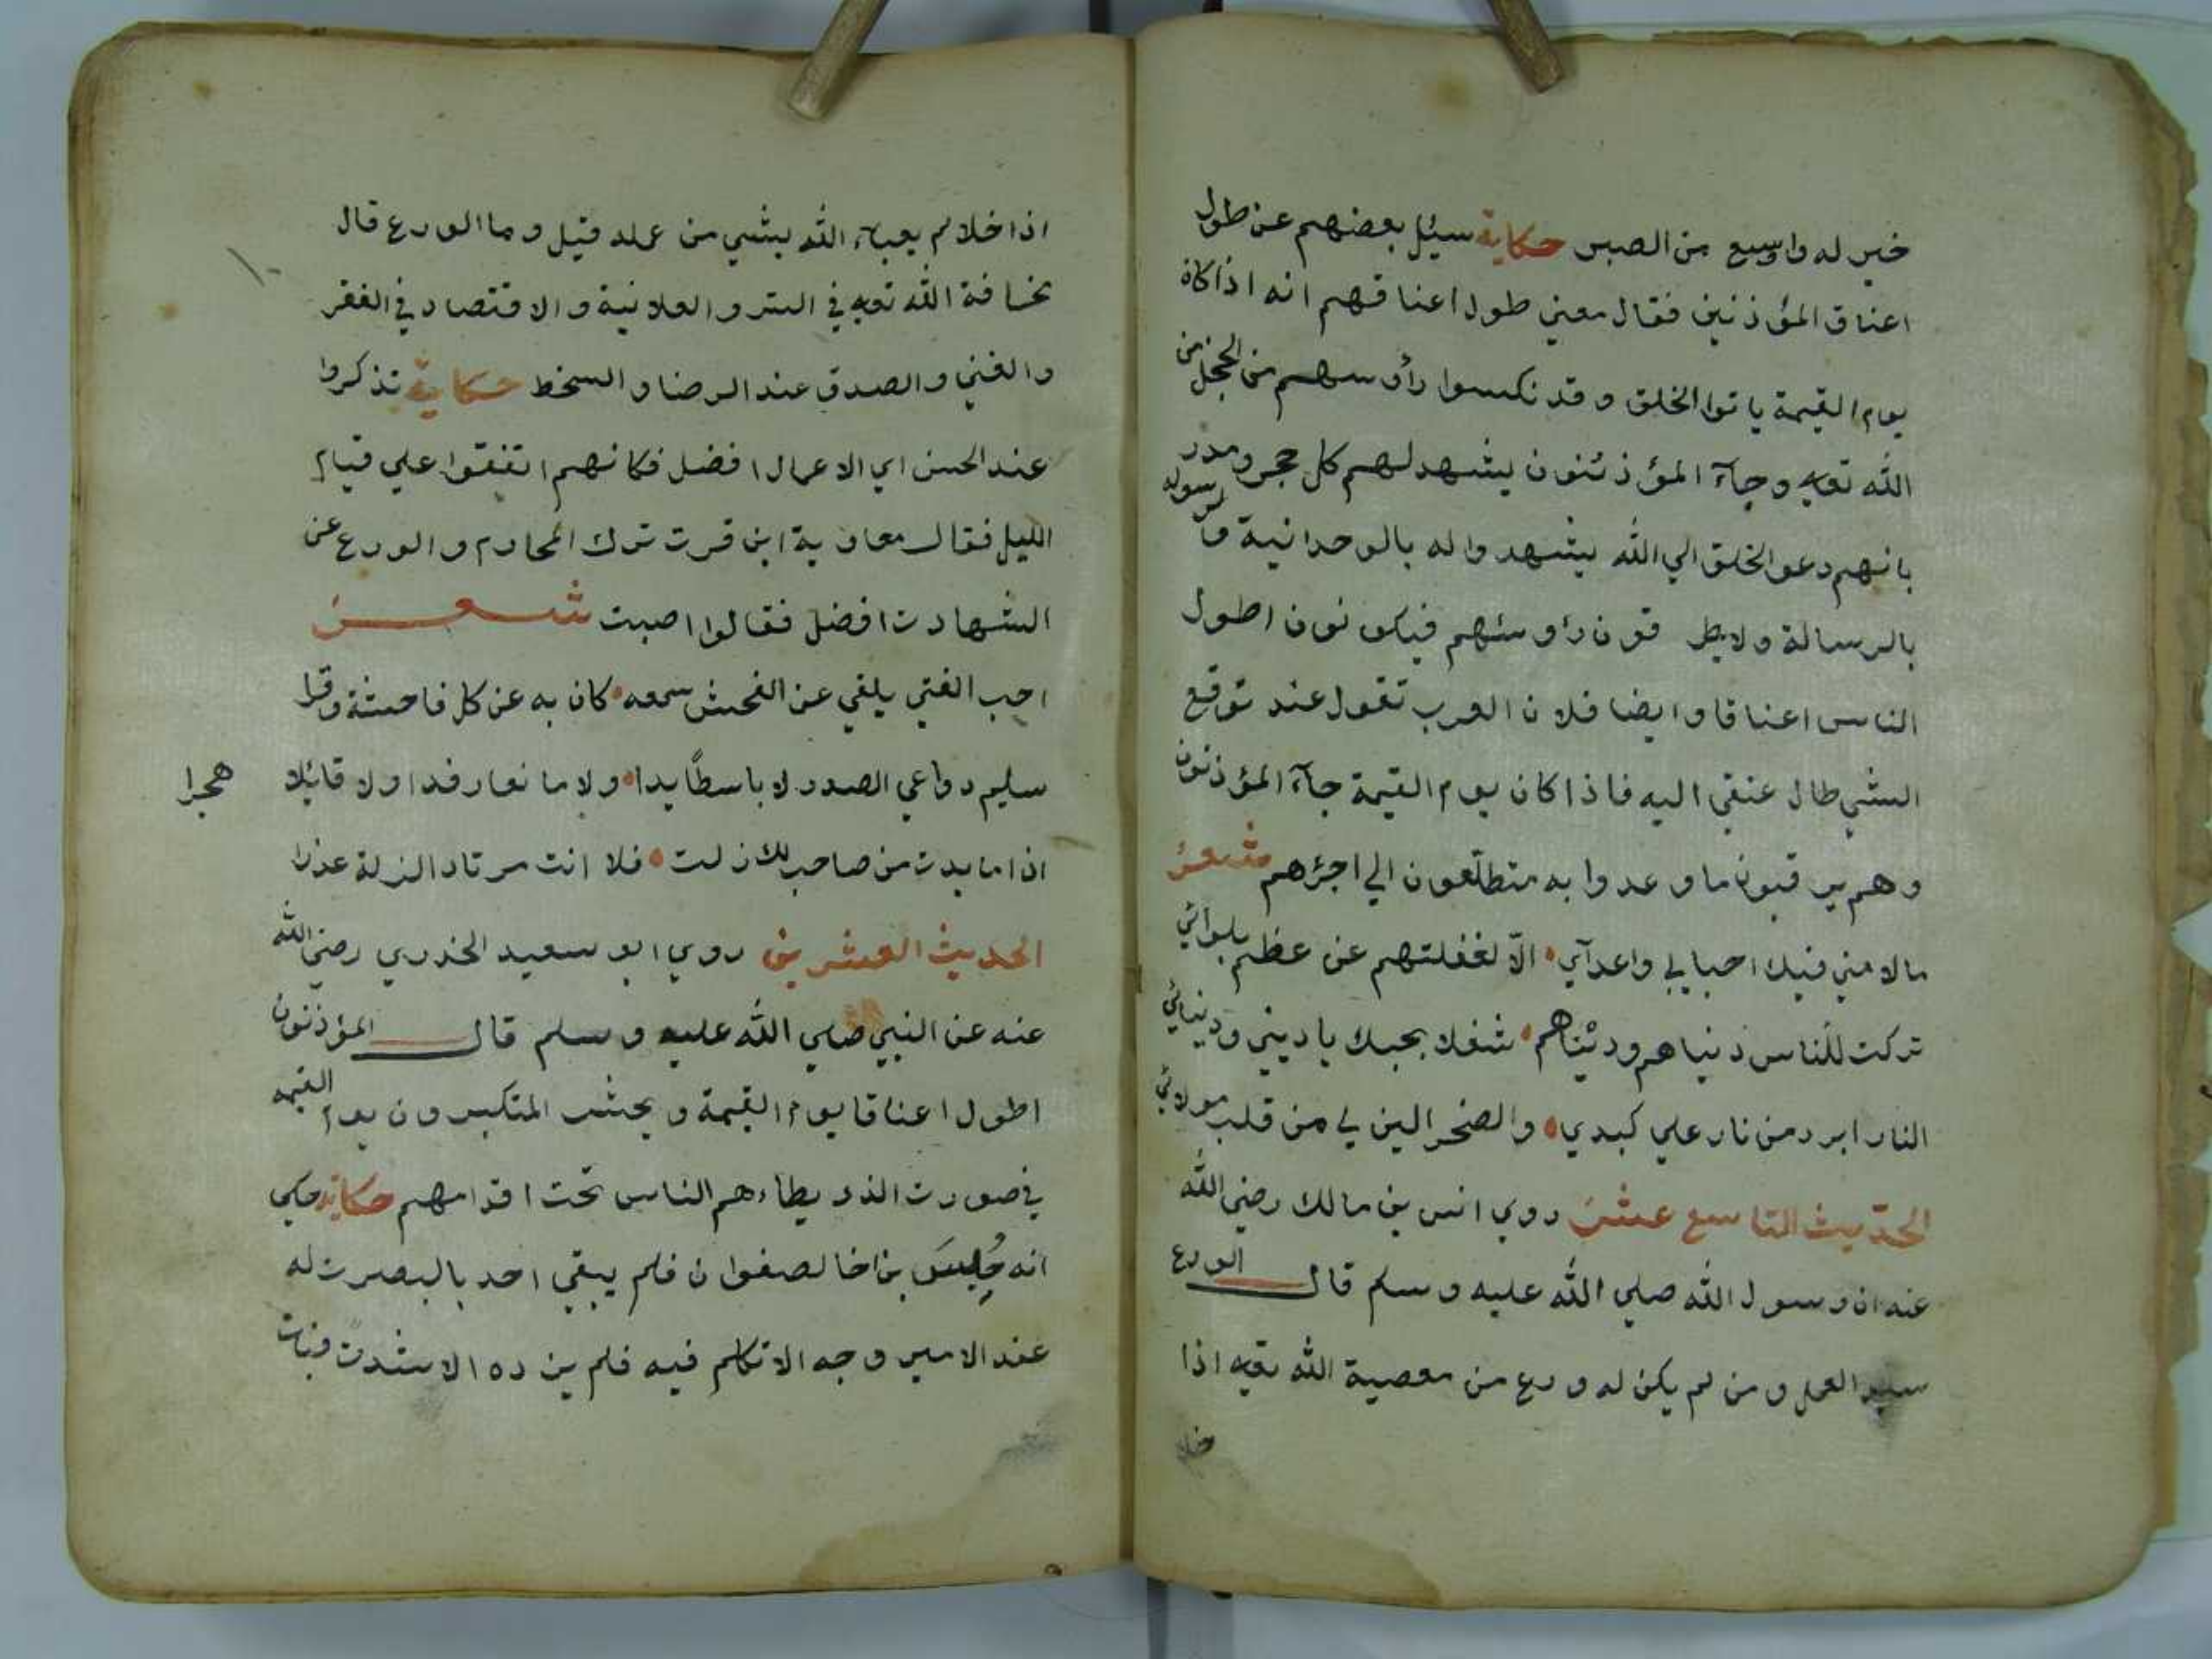 خير له واوسع من الصبر حكاية سئيل بعضهم عن طول
اعناق المؤذنين فقال معني طول اعناقهم انه اذا كان
يوم القيمة ياتوا الخلق وقد نكسوا رأوسهم من الخجل من
الله تعه وجآء المؤذنون يشهد لهم كل حجر ومدر
بانهم دعو الخلق الي الله يشهدوا له بالوحدانية ولرسوله
بالرسالة ولا يطرقون رؤوسهم فيكونون اطول
الناس اعناقا وايضا فلان العرب تقول عند توقع
الشي طال عنقي اليه فاذا كان يوم القيمة جآء المؤذنون
وهم يرقبون ما وعدوا به متطلّعون الي اجرهم شعر
ما لامني فيك احبابي واعدآي الّا لغفلتهم عن عظم بلوائي
تركت للناس دنياهم ودينهم شغلا بحبك يا ديني ودنيائي
النار ابرد من نار علي كبدي والصخر الين لي من قلب مولائي
الحديث التاسع عشر روي انس بن مالك رضي الله
عنه ان رسول الله صلي الله عليه وسلم قال الورع
سيد العمل ومن لم يكن له ورع من معصية الله تعه اذا
خلا
اذا خلا لم يعباء الله بشي من عمله قيل وما الورع قال
مخافة الله تعه في السر والعلانية والاقتصاد في الفقر
والغني والصدق عند الرضا والسخط حكاية تذكروا
عند الحسن اي الاعمال افضل فكانهم اتفقوا علي قيام
الليل فقال معاوية ابن قرت ترك المحارم والورع عن
الشهادت افضل فقالوا اصبت شعر
احب الفتي يلقي عن الفحش سمعه كان به عن كل فاحشة وقرا
سليم دواعي الصدر لا باسطًا يدا ولا مانعا رفدا ولا قائلا
هجرا
اذا ما بدت من صاحب لك زلت فلا انت مرتاد الزلة عذرا
الحديث العشرين روي ابو سعيد الخدري رضي الله
عنه عن النبي صلي الله عليه وسلم قال المؤذنون
اطول اعناقا يوم القيمة ويحشر المتكبرون يوم القيمه
في صورت الذر يطاءهم الناس تحت اقدامهم حكاية حكي
انه حُبِسَ بن اخا لصفوان فلم يبقي احد بالبصرت له
عند الامير وجه الا تكلم فيه فلم يزده الا شدت فبات